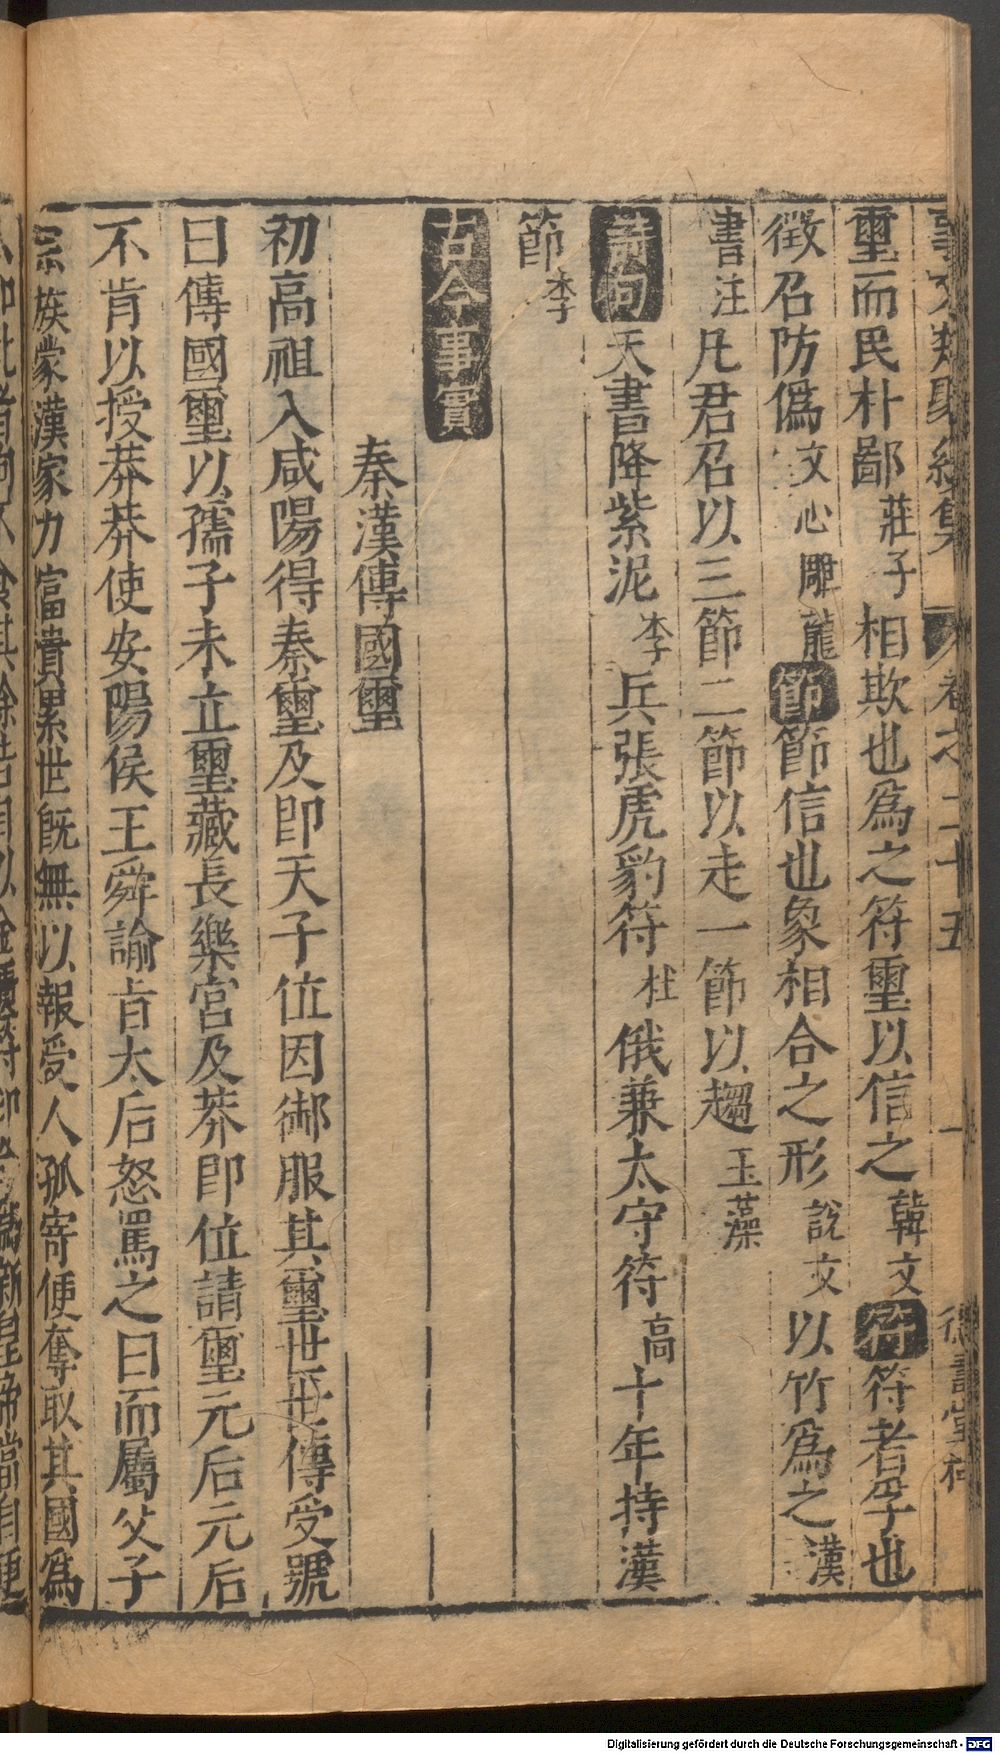 事文類聚續集 卷之二十五 一 德壽堂梓
璽而民朴鄙莊子相欺也爲之符璽以信之韓文符符者孚也
徵召防僞文心雕龍節節信也象相合之形說文以竹爲之漢
書注凡君召以三節二節以走一節以趨玉藻
詩句天書降紫泥李兵張虎豹符杜俄兼太守符高十年持漢
節李
古今事實
秦漢傳國璽
初高祖入咸陽得秦璽及即天子位因御服其璽世世傳受號
曰傳國璽以孺子未立璽藏長樂宮及莽即位請璽元后元后
不肯以授莽莽使安陽侯王舜諭旨太后怒罵之曰而屬父子
宗族蒙漢家力富貴累世旣無以報受人孤寄便奪取其國爲
Digitalisierung gefördert durch die Deutsche Forschungsgemeinschaft - DFG